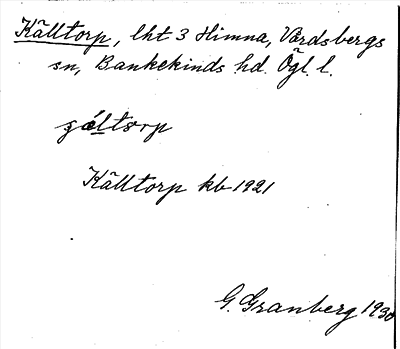 Källtorp, lht 3 Himna, Vårdsbergs
sn, Bankekinds hd. Ögl. l.
Källtorp kb 1921
G. Granberg 1930